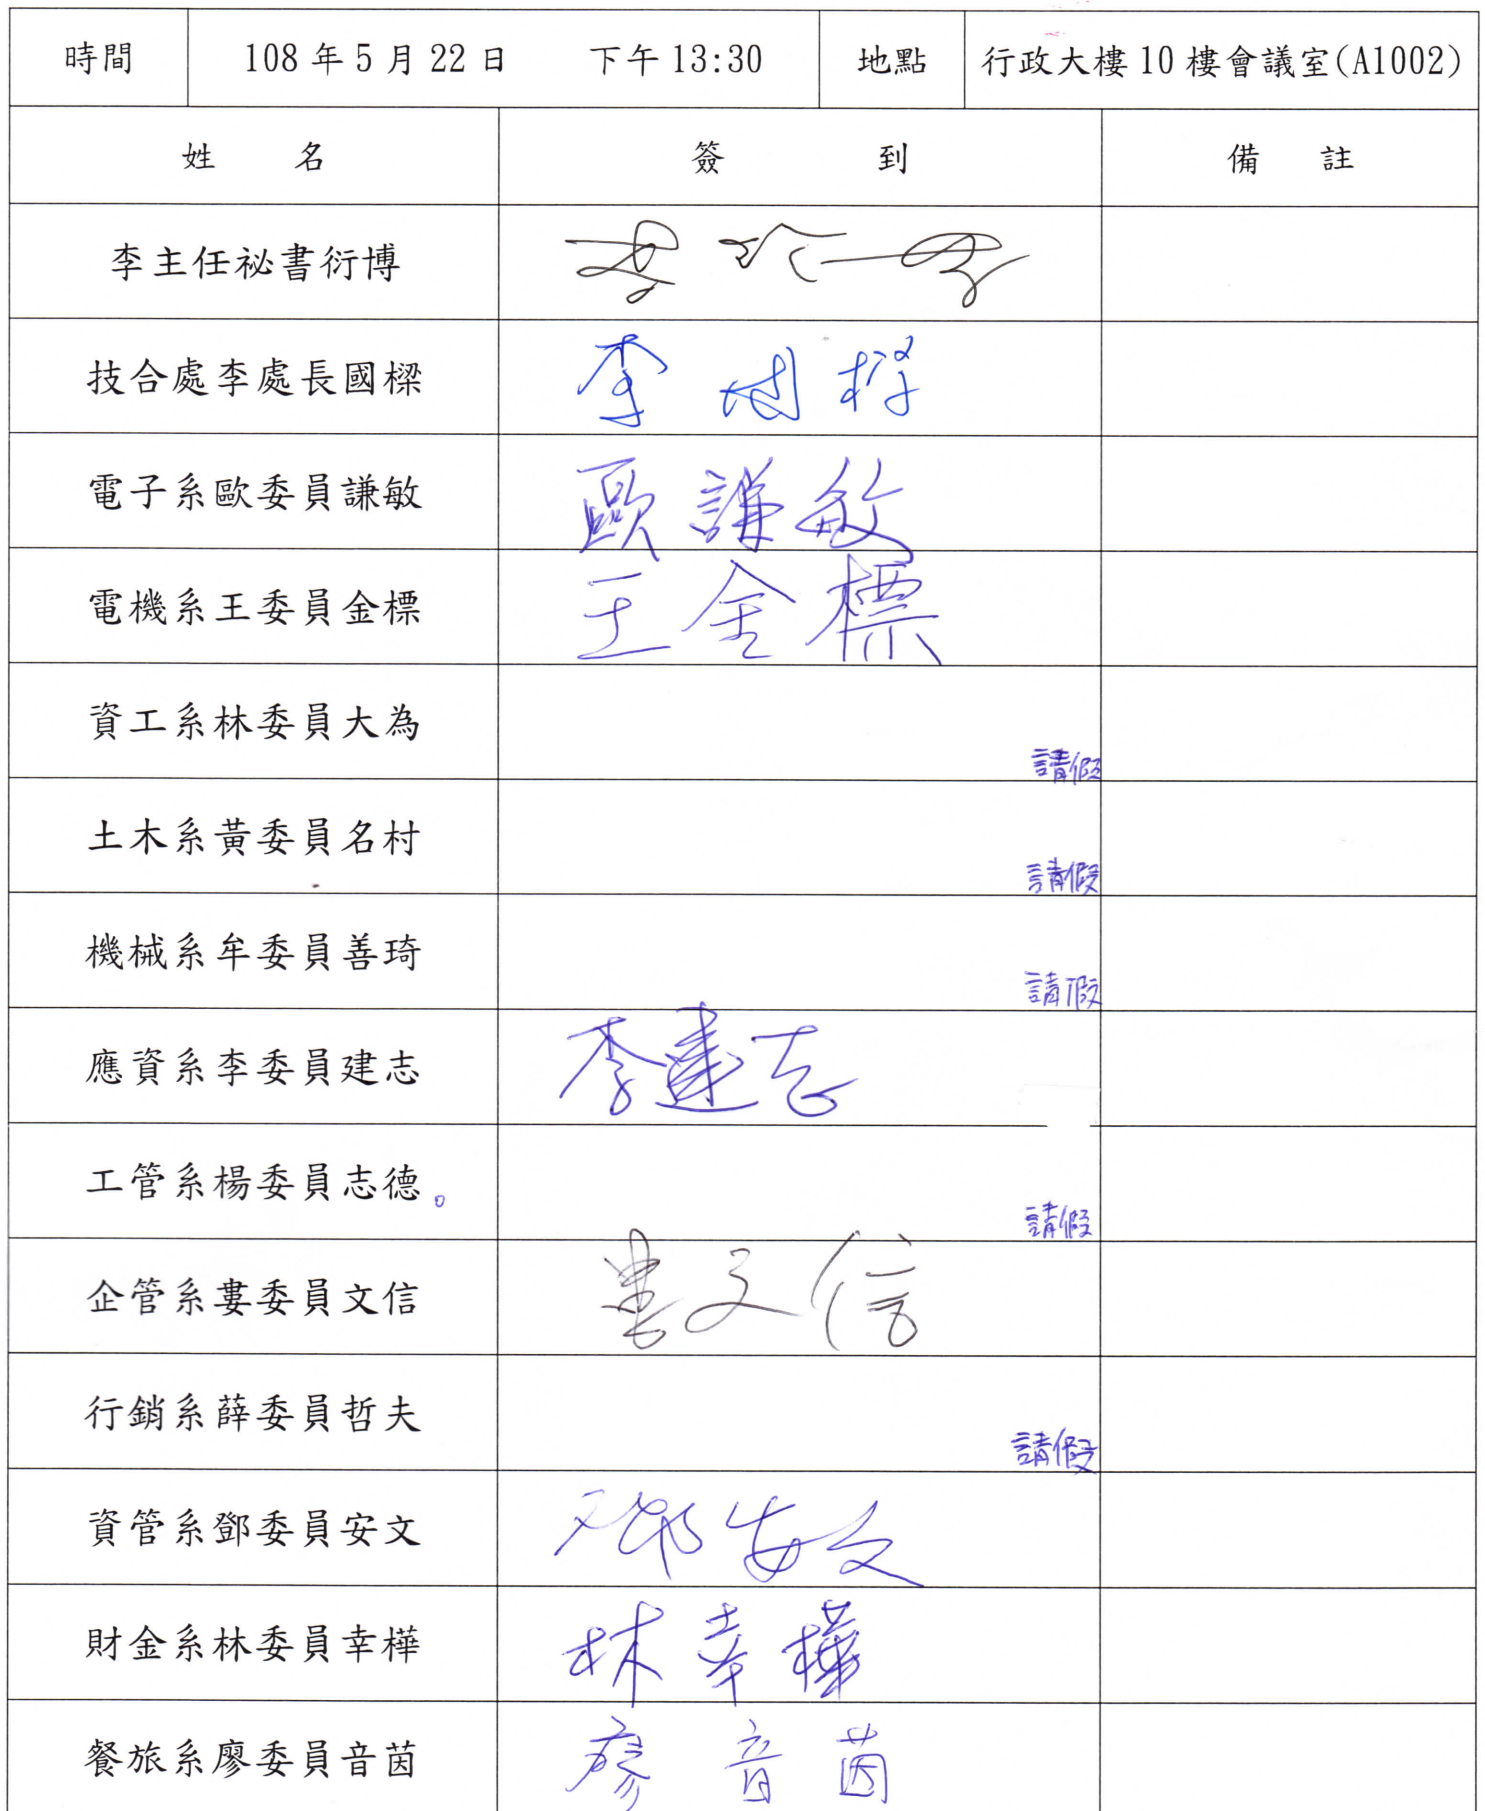 時間 108年5月22日 下午13:30 地點 行政大樓10樓會議室(A1002)
姓 名 簽 到 備 註
李主任祕書衍博
技合處李處長國樑 李國樑
電子系歐委員謙敏 歐謙敏
電機系王委員金標 王金標
資工系林委員大為 請假
土木系黃委員名村 請假
機械系牟委員善琦 請假
應資系李委員建志 李建志
工管系楊委員志德。 請假
企管系婁委員文信 婁文信
行銷系薛委員哲夫 請假
資管系鄧委員安文 鄧安文
財金系林委員幸樺 林幸樺
餐旅系廖委員音茵 廖音茵